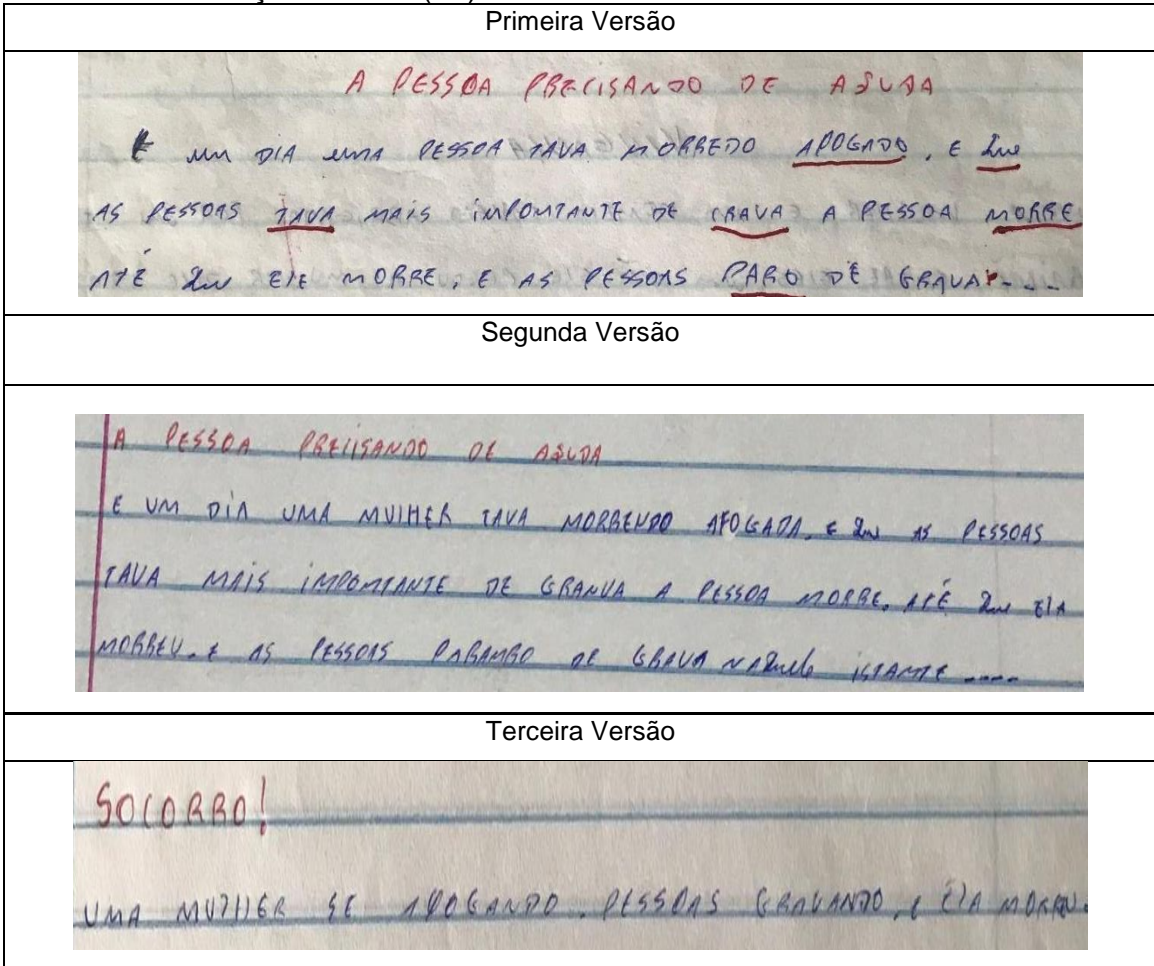 Primeira Versão
A PESSOA PRECISANDO DE AJUDA
E um DIA uma PESSOA TAVA MORREDO APOGADO, E que
AS PESSOAS TAVA MAIS iMPOMTANTE DE CRAVA A PESSOA MORRE
ATÉ que ELE MORRE, E AS PESSOAS PARO DE GRAVAR----
Segunda Versão
A PESSOA PRECISANDO DE AJUDA
E UM DIA UMA MULHER TAVA MORRENDO AFOGADA, E que AS PESSOAS
TAVA MAiS iMPOMTANTE DE GRANVA A PESSOA MORRE, ATÉ que ELA
MORREU. E AS PESSOAS PARAMRO DE GRAVA NAquele ISTANTE ----
Terceira Versão
SOCORRO!
UMA MULHER SE APOGANDO. PESSOAS GRAVANDO, E ELA MORREU.